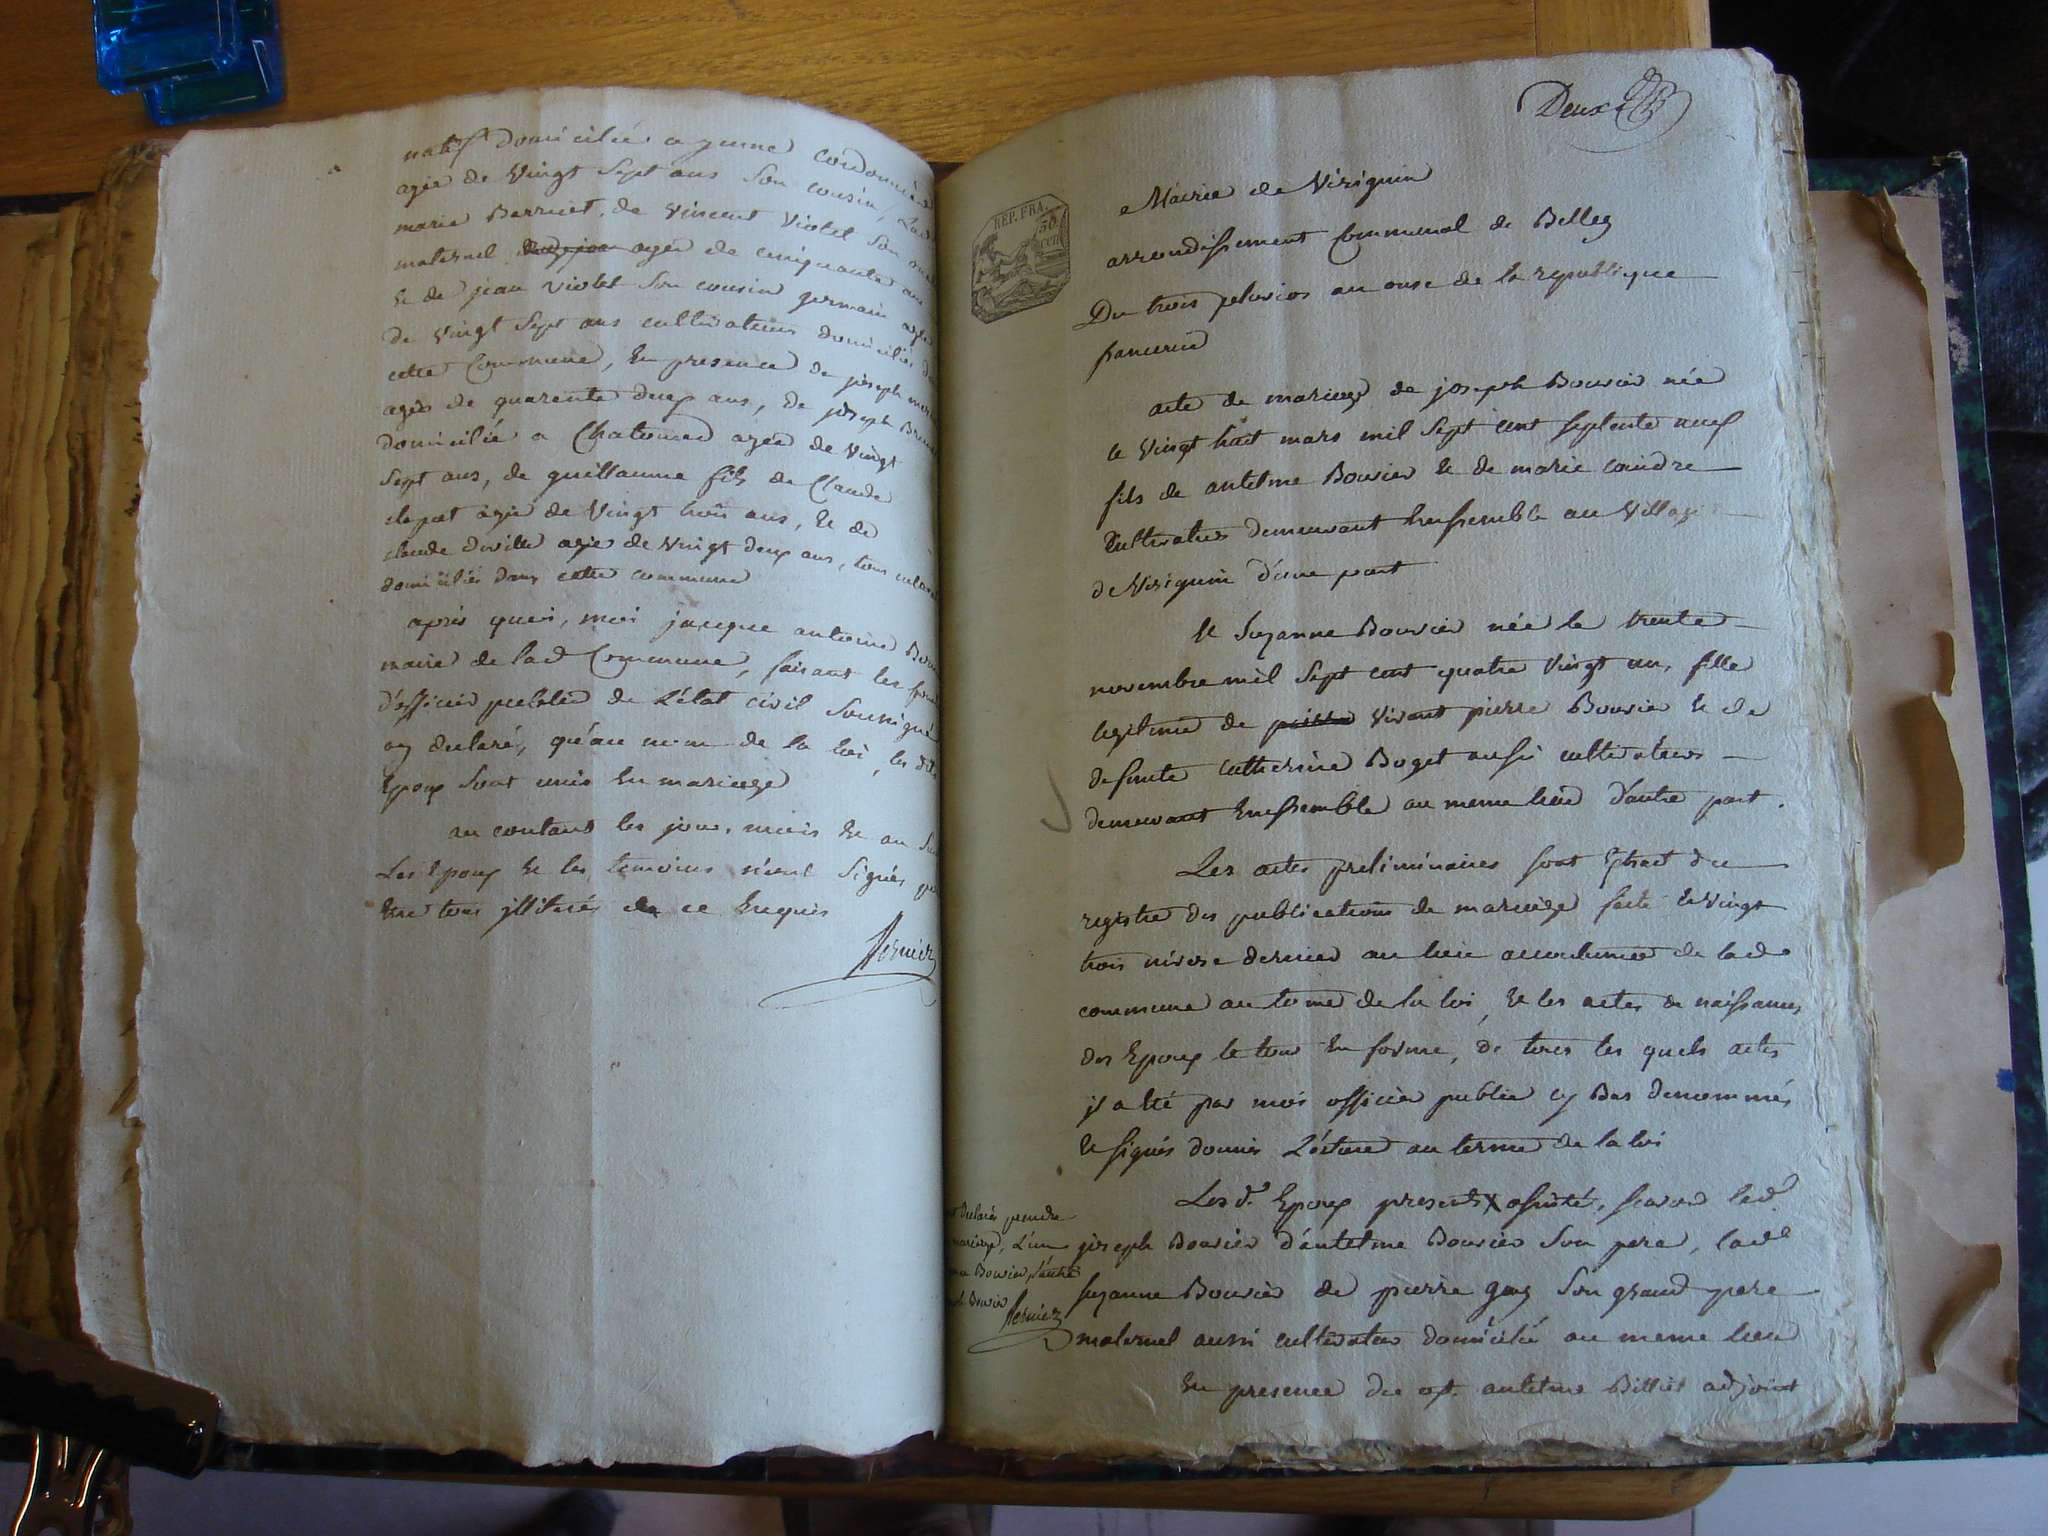 natif domicilié a peine cordonnier
agée de Vingt Sept ans Son cousin, Lad
marie Barruet, de Vincent Violet Son oncle
maternel agée de cinquante ans
Et de jean Violet Son cousin germain agée
de Vingt Sept ans cultivateurs domiciliés
cette Commune, En presence de joseph
agée de quarente deux ans, de joseph
domicilié a Chatonod agée de Vingt
Sept ans, de guillaume fils de Claude
agée de Vingt trois ans, Et de
claude agée de Vingt deux ans, tous
domiciliés dans cette commune
après quoi, moi jacque antoine
maire de lad Commune, faisant les
d'officier public de L'état civil Soussigné
ay declaré, qu'au nom de la loi, les dits
Epoux Sont unis En mariage
au contant les jour, mois Et an Sus
Les Epoux Et les temoins n'ont Signés
Etre tous jllitérés de ce Enquis
Bernier
Deux
REP. FRA.
50 cen
Mairie de Virignin
arrondissement Communal de Belley
Du trois pluvios an onse de la republique
francerie
acte de mariage de joseph Bouvier née
le Vingt huit mars mil Sept cent septente neuf
fils de antelme Bouvier Et de marie
Cultivateurs demeurant Enssemble au Village
de Virignin d'une part
Et Suzanne Bouvier née le trente
novembre mil Sept cent quatre Vingt un, fille
legitime de Vivant pierre Bouvier Et de
defunte Catherine Buget aussi cultivateurs
demeurant Enssemble au meme lieu d'autre part.
Les actes preliminaires sont Extrait du
registre des publications de mariage faite le Vingt
trois nivose dernier au lieu accoutumée de lad
commune au terme de la loi, Et les actes de naissances
des Epoux le tout En forme, de tous les quels actes
jl a été par moi officier public cy Bas denommés
Et signés donnés Lécture au terme de la loi
Les d. Epoux present X assisté, savoir led
joseph Bouvier d'antelme Bouvier Son pere, lad
Suzanne Bouvier de pierre guy Son grand pere
maternel aussi cultivateur domicilié au meme lieu
En presence du cit. antelme Billiet adjoint
declarés prendre
mariage, L'un
Bouvier, l'autre
Bouvier
Bernier